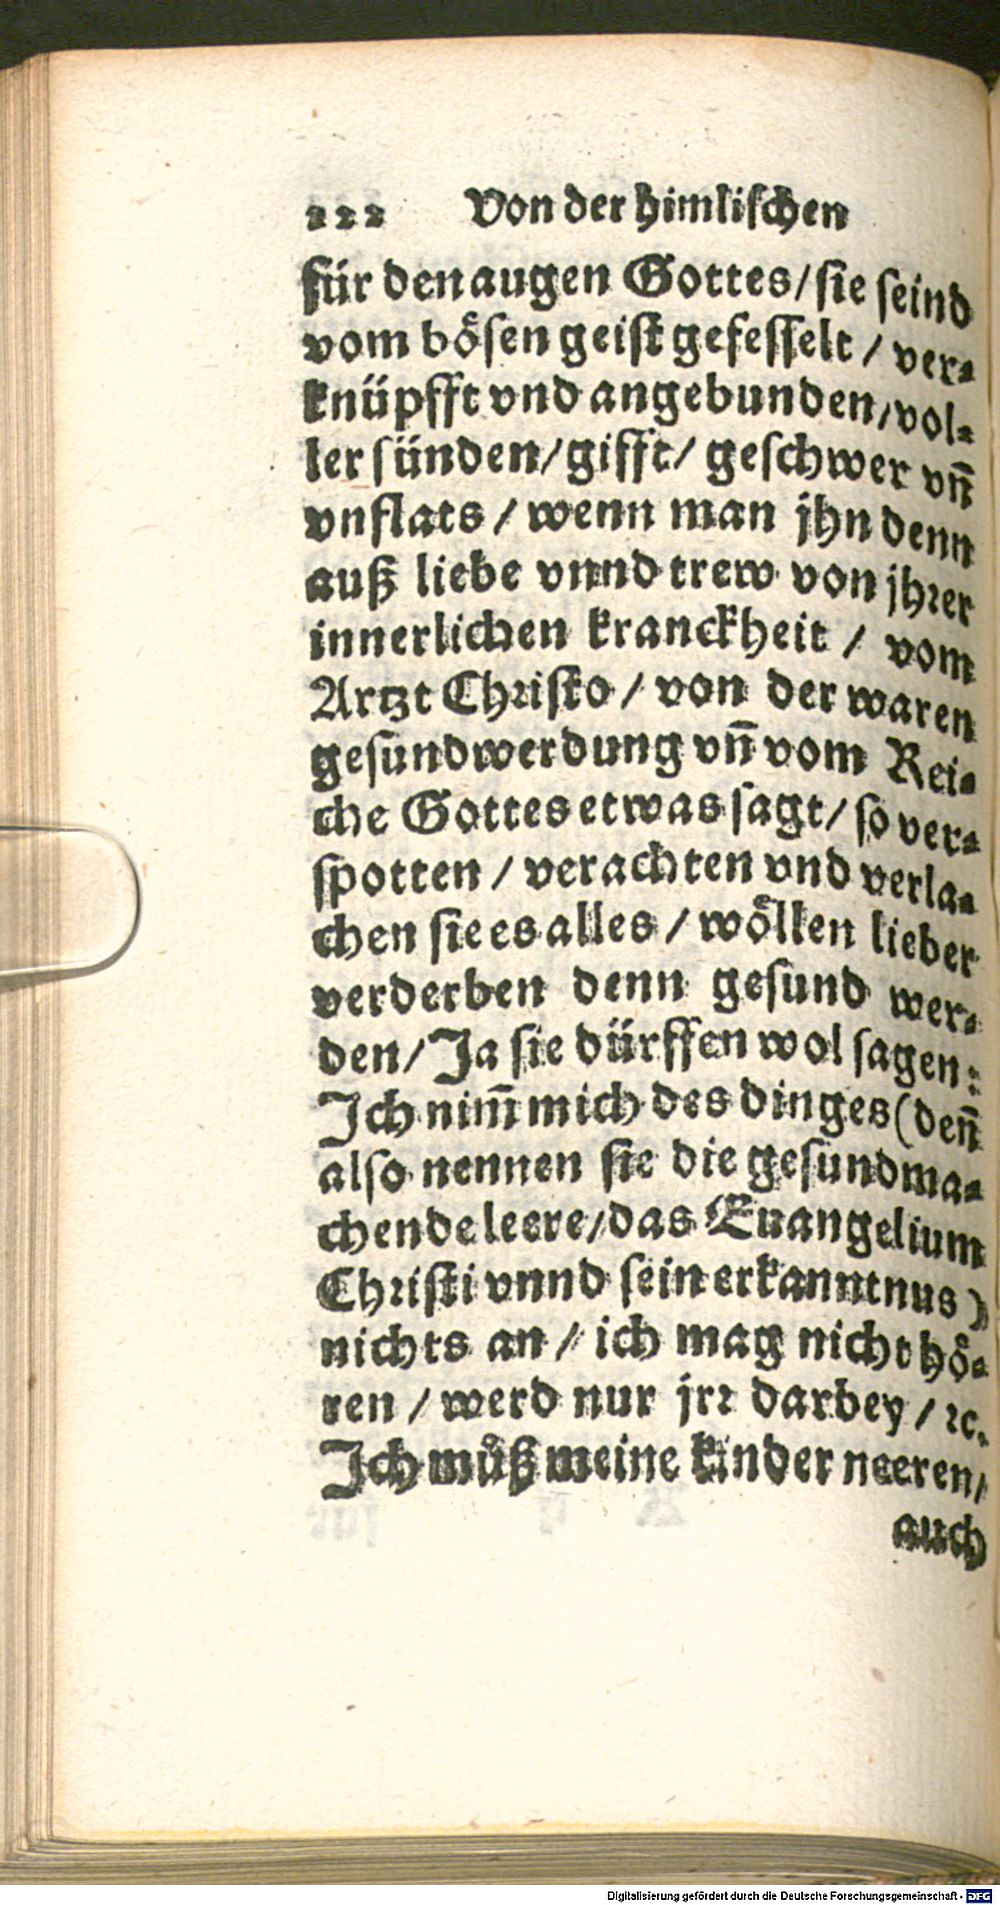 222 Von der himlischen
für den augen Gottes/ sie seind
vom bösen geist gefesselt / ver⸗
knüpfft vnd angebunden/ vol⸗
ler sünden/ gifft/ geschwer vñ
vnflats / wenn man jhn denn
auß liebe vnnd trew von jhrer
innerlichen kranckheit / vom
Artzt Christo / von der waren
gesundwerdung vñ vom Rei⸗
che Gottes etwas sagt/ so ver⸗
spotten / verachten vnd verla⸗
chen sie es alles / wöllen lieber
verderben denn gesund wer⸗
den/ Ja sie dürffen wol sagen:
Ich nim̃ mich des dinges (deñ
also nennen sie die gesundma⸗
chende leere/ das Euangelium
Christi vnnd sein erkanntnus)
nichts an / ich mag nicht hö⸗
ren / werd nur jrr darbey / ꝛc.
Ich můß meine kinder neeren/
auch
Digitalisierung gefördert durch die Deutsche Forschungsgemeinschaft - DFG